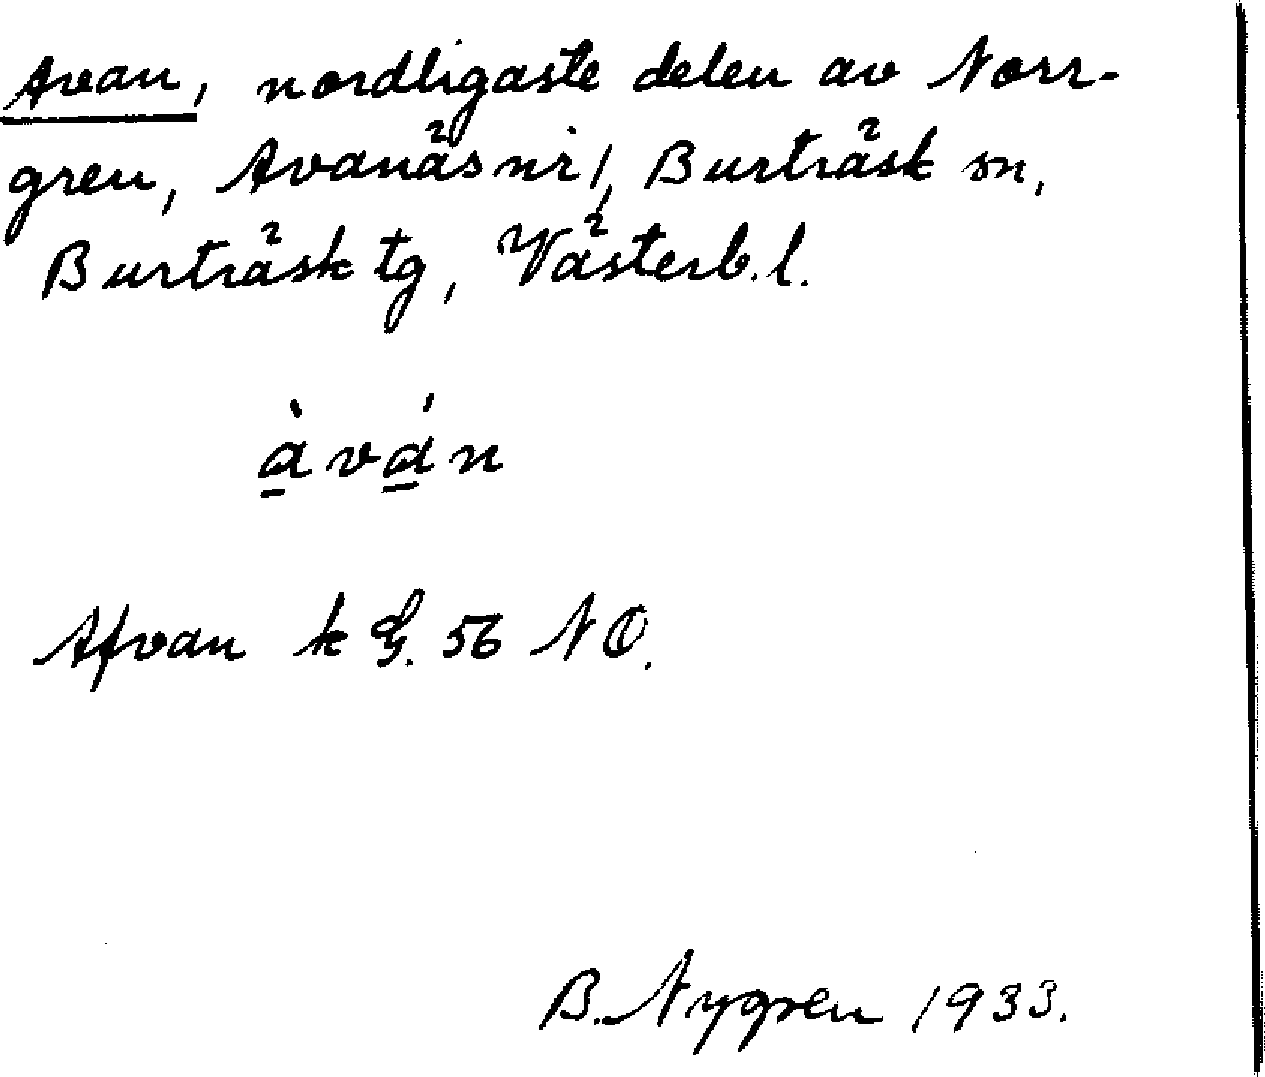 Avan, nordligaste delen av Norr-
gren, Avanäs nr 1, Burträsk sn,
Burträsk tg, Västerb. l.
à̱vá̱n
Afvan k G. 56 NO.
B. Nygren 1933.